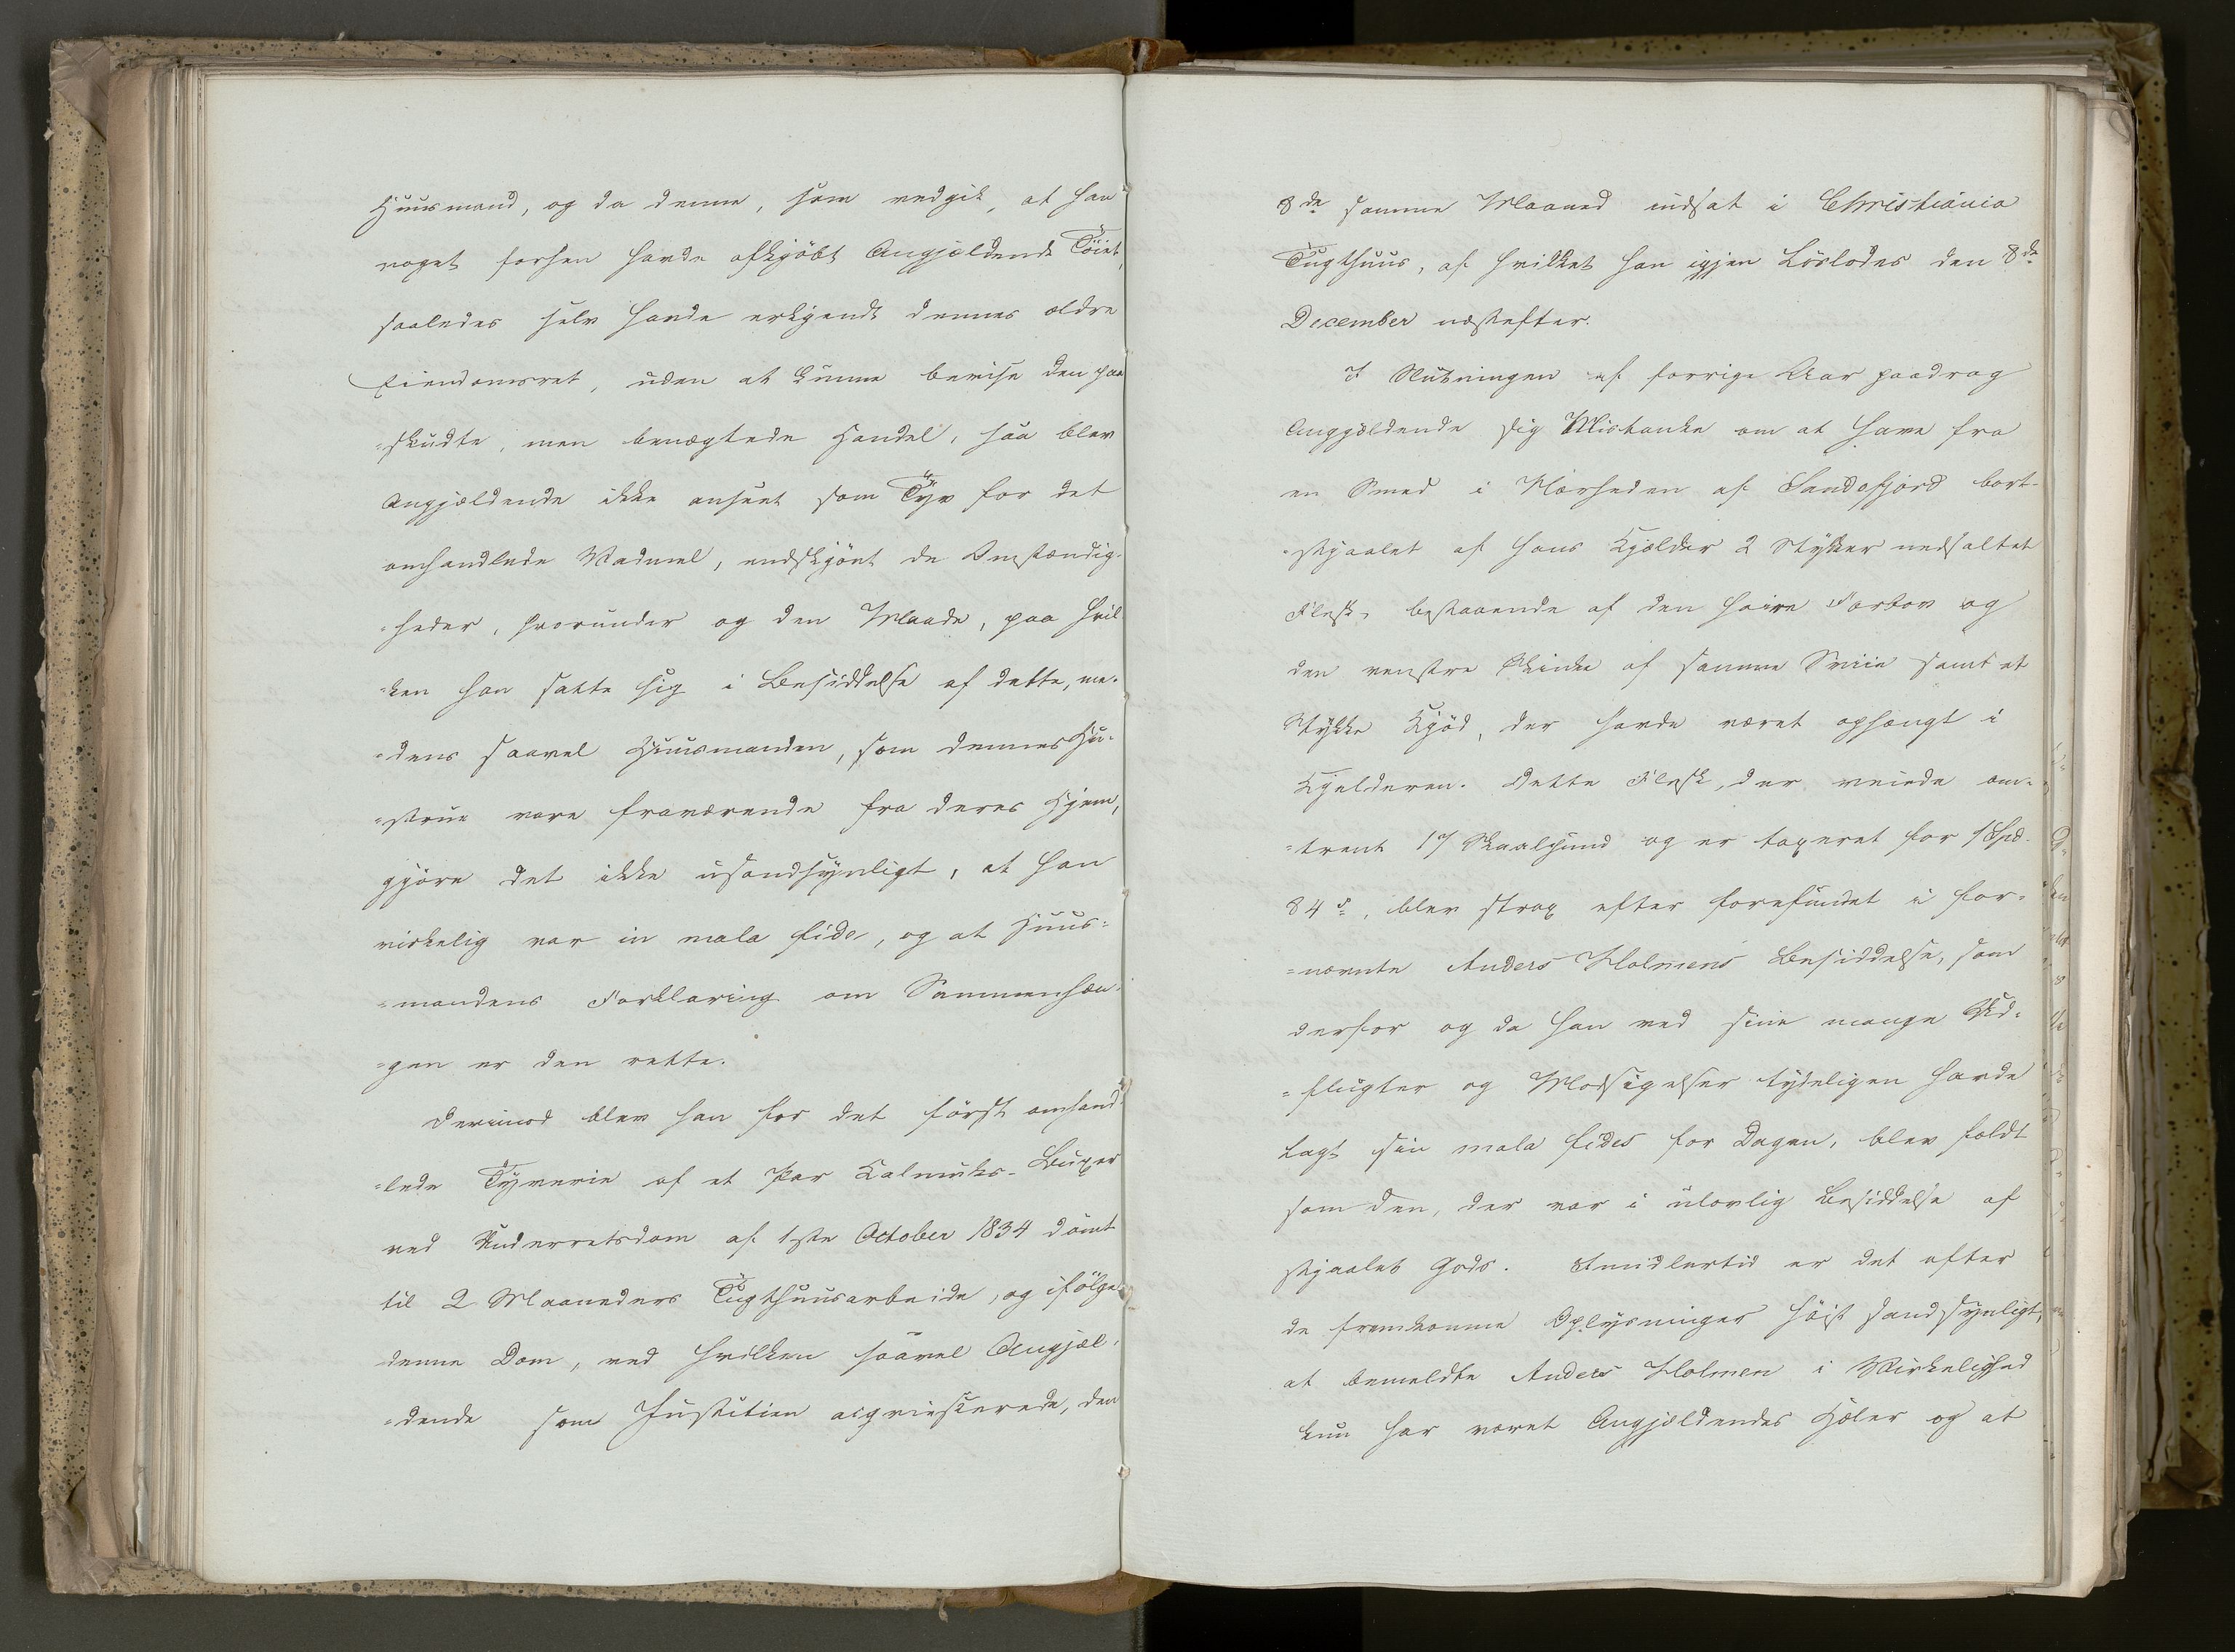 Huusmand, og da denne, som vedgik, at han
noget forhen havde afkjöbt Angjældende Töiet,
saaledes selv havde erkjendt dennes ældre
Eiendomsret, uden at kunne bevise den paa
=skudte, men benægtede Handel, saa blev
Angjældende ikke anseet som Tyv for det
omhandlede Vadmel, endskjönt de Omstændig-
=heder, hvorunder og den Maade, paa hvil-
=ken han satte sig i Besiddelse af dette, me-
=dens saavel Huusmanden, som dennes Hu-
=strue vare fraværende fra deres Hjem,
gjöre det ikke usandsynligt, at han
virkelig var in mala fide, og at Huus=
=mandens Forklaring om Sammenhæn-
=gen er den rette.
Derimod blev han for det först omhand-
=lede Tyverie af et Par Kalmuks-Buxer
ved Underretsdom af 1ste October 1834 dömt
til 2 Maaneders Tugthuusarbeide, og ifölge
denne Dom, ved hvilken saavel Angjæl-
=dende som Justitien acqviescerede, den
8de samme Maaned indsat i Christiania
Tugthuus, af hvilket han igjen Löslodes den 8de
December næstefter.
I Slutningen af forrige Aar paadrog
Angjældende sig Mistanke om at have fra
en Smed i Nærheden af Sandefjord bort-
=stjaalet af hans Kjælder 2 Stykker nedsaltet
Flesk, bestaaende af den höire Forbov og
den venstre Skinke af samme Sviin samt et
Stykke Kjöd, der havde været ophængt i
Kjælderen. Dette Flesk, der veiede om-
=trent 17 Skaalpund og er taxeret for 1 Spd.
84 s, blev strax efter forefundet i for-
=nævnte Anders Holmens Besiddelse, som
derfor og da han ved sine mange Ud-
=flugter og Modsigelser tydeligen havde
lagt sin mala fides for Dagen, blev fældt
som den, der var i ulovlig Besiddelse af
stjaalet Gods. Imidlertid er det efter
de fremkomne Oplysninger höist sandsynligt,
at bemeldte Anders Holmen i Virkelighed
kun har været Angjældendes Hæler og at